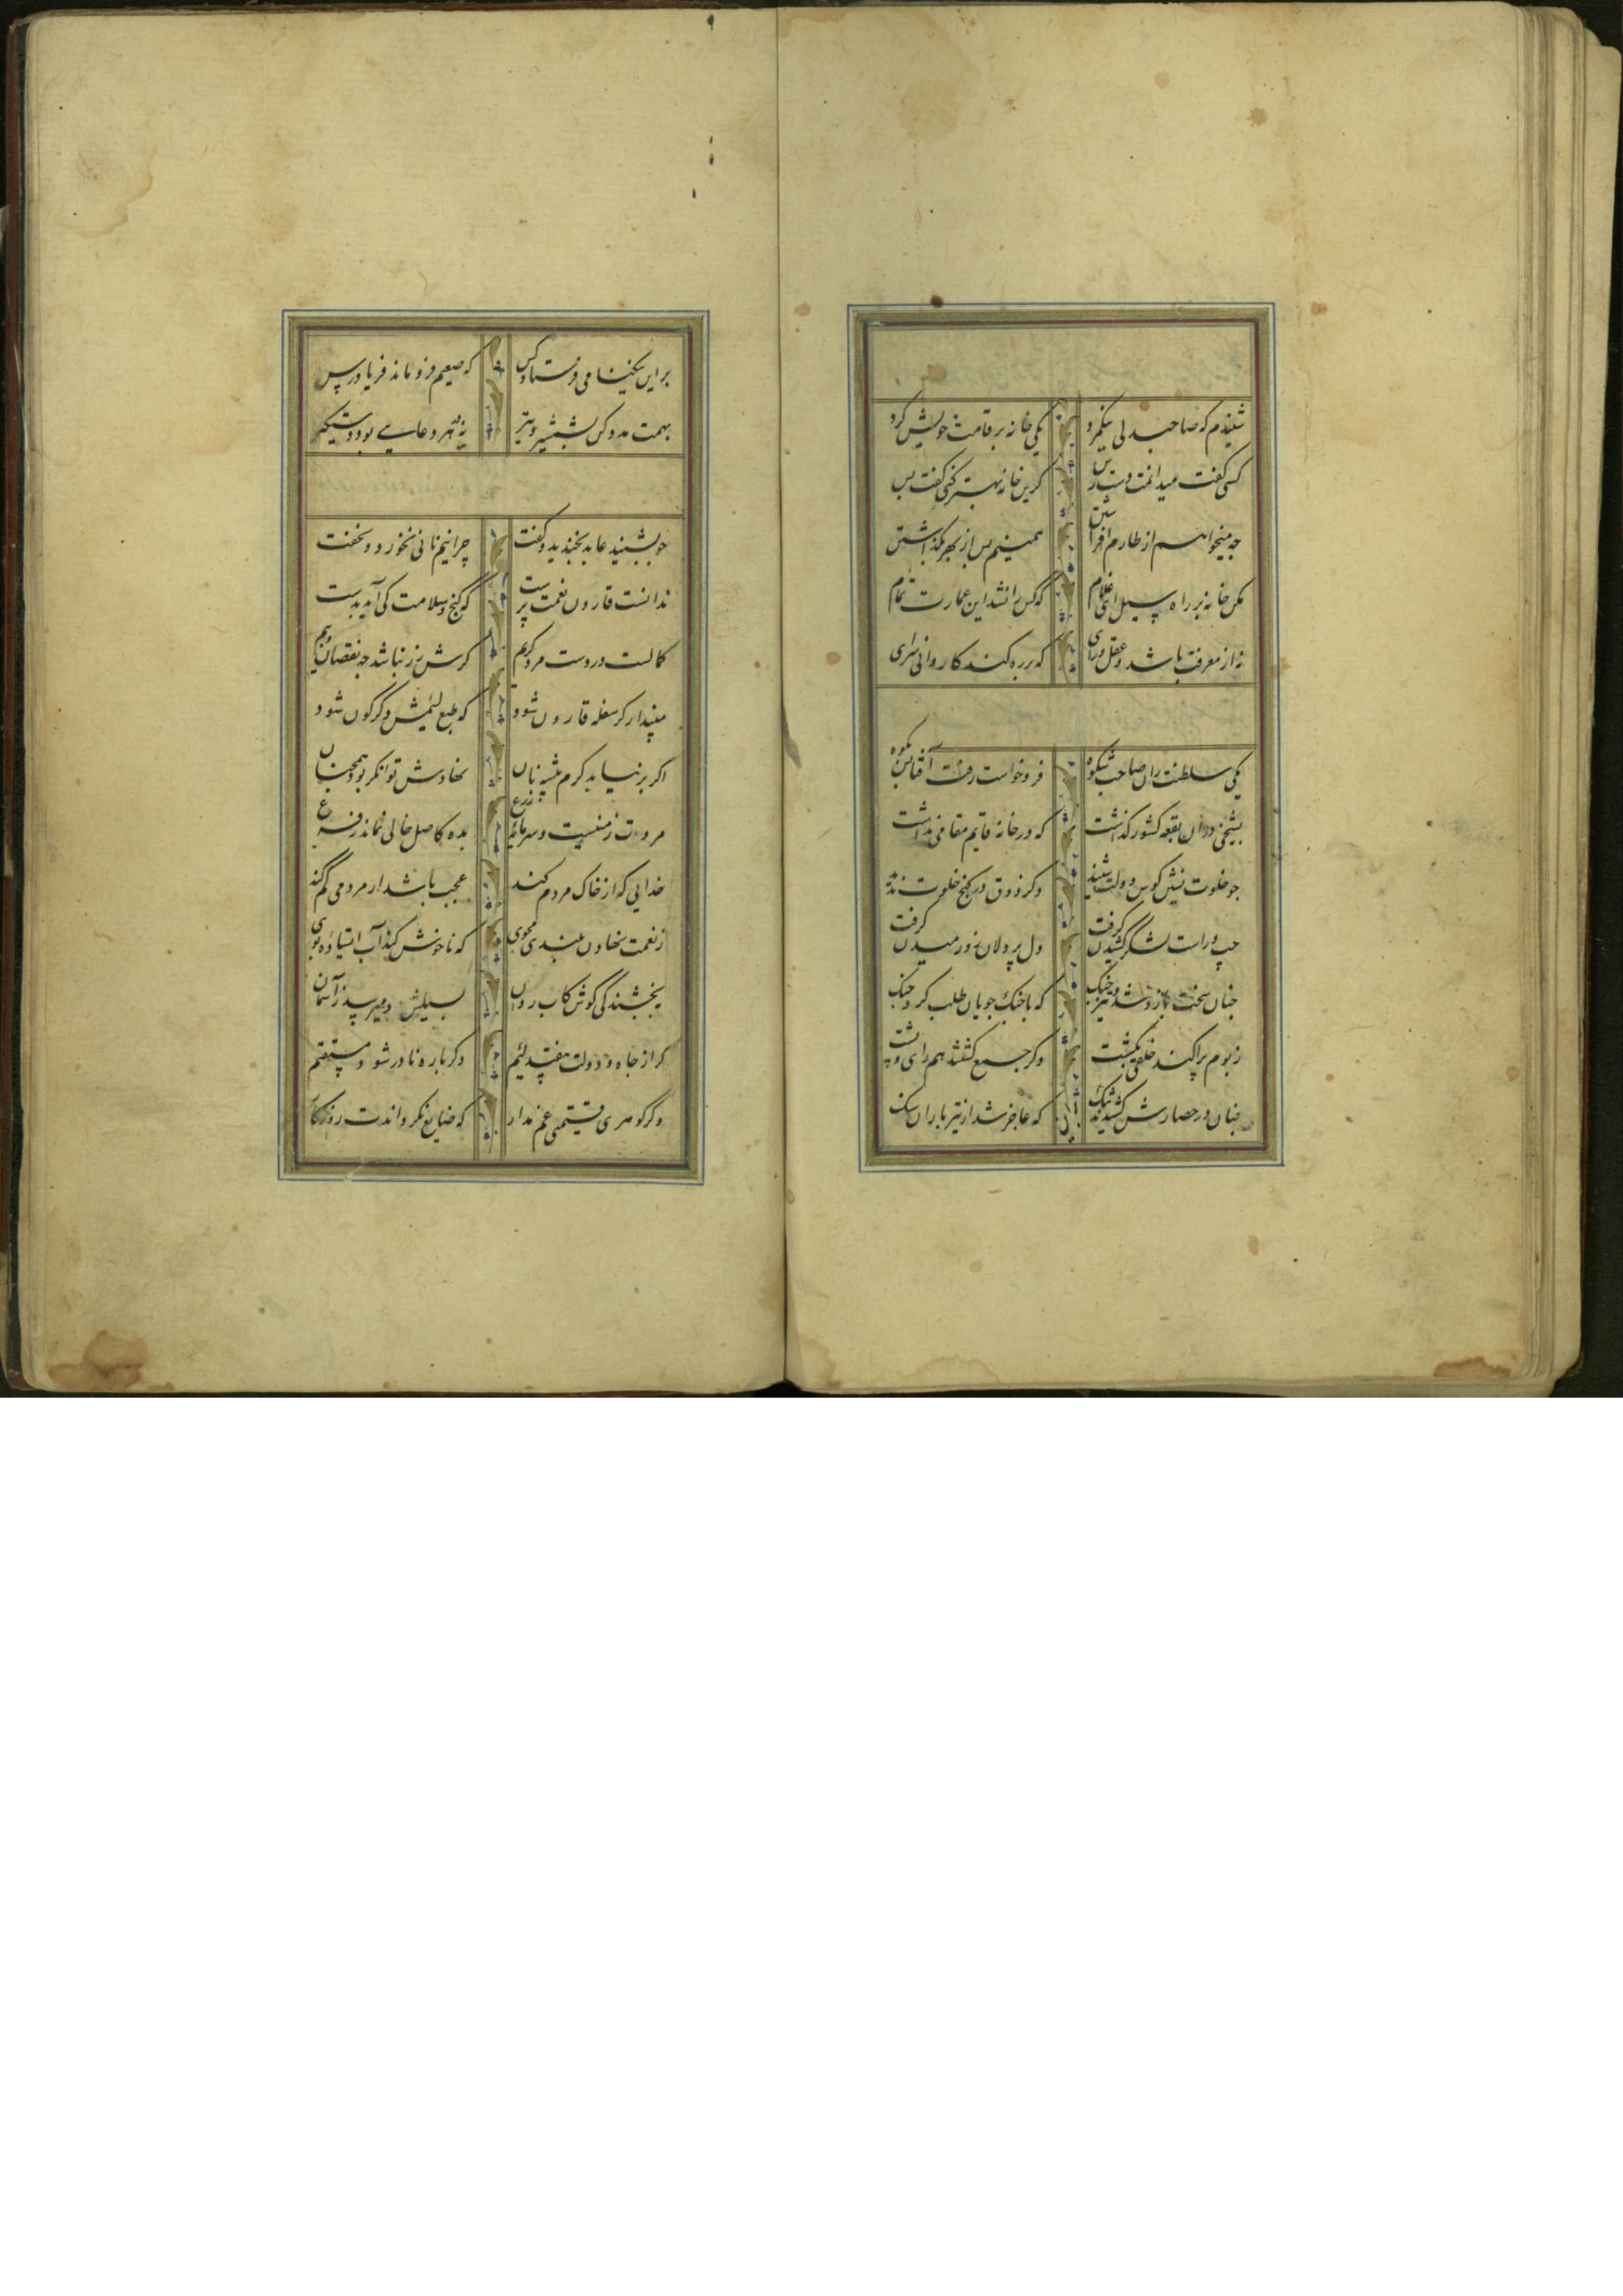 شنیدم که صاحبدلی نیکمرد یکی خانه بر قامت خویش کرد
کسی گفت میدانمت دسترس کزین خانه بهتر کنی گفت بس
چه میخواهم از طارم افراشتن همینم بس از بهر بگذاشتن
مکن خانه بر راه سیل ای غلام که کس را نشد این عمارت تمام
نه از معرفت باشد و عقل و رای که بر ره کند کاروانی سرای
یکی سلطنت ران صاحب شکوه فرو خواست رفت آفتابش بکوه
بشیخی در آن بقعه کشور گذاشت که در خانه قایم مقامی نداشت
چو خلوت نشین کوس دولت شنید دگر ذوق در کنج خلوت ندید
چپ و راست لشکر کشیدن گرفت دل پر دلان زو رمیدن گرفت
چنان سخت بازو شد و تیز چنگ که با جنگ جویان طلب کرد جنگ
ز بوم پراکنده خلقی بکشت دگر جمع گشتند هم رای و پشت
چنان در حصارش کشیدند تنگ که عاجز شد از تیر باران و سنگ
بر این نیکنامی فرستاد کس که صعبم فرو مانده فریاد رس
بهمت مدد کن که شمشیر و تیر نه در هر وغایی بود دستگیر
چو بشنید عابد بخندید و گفت چرا نیم نانی نخورد و نخفت
ندانست قارون نعمت پرست که گنج سلامت کی آید بدست
کمالست در دست مرد کریم گرش زر نباشد چه نقصان و بیم
مپندار گر سفله قارون شود که طبع لئیمش دگرگون شود
اگر بر نیابد کرم پیشه نان نهادش توانگر بود همچنان
مروت زمینست و سرمایه زرع بده کاصل خالی نماند ز فرع
خدایی که از خاک مردم کند عجب باشد ار مردمی گم کند
ز نعمت نهادن بلندی مجوی که ناخوش کند آب استاده بوی
ببخشندگی کوش کاب روان بسیلش دمیرسد ز آسمان
گر از جاه و دولت بیفتد لئیم دگر باره نادر شود مستقیم
وگر گوهری قیمتی غم مدار که ضایع نگرداندت روزگار